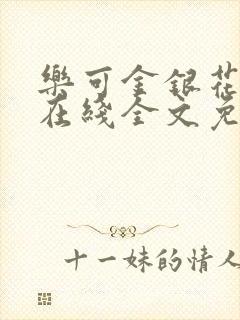 樂可金銀花
在綫全文免
十一妹的情人